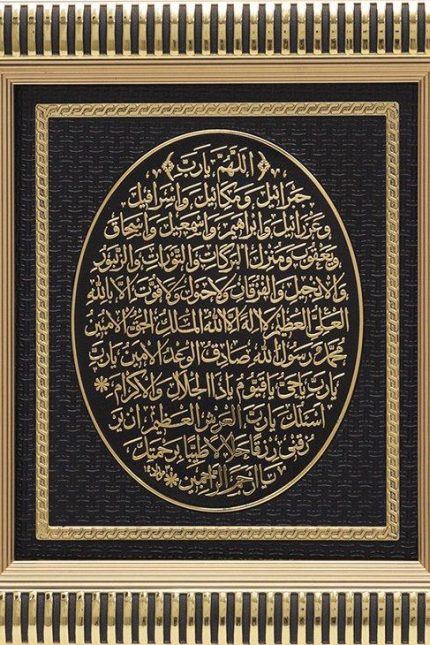 ﴿اَللّٰهُمَّ يَارَبَّ﴾
جَبْرَائِيلَ وَمِيكَائِيلَ وَاِسْرَافِيلَ
وَعَزْرَائِيلَ وَاِبْرَاهِيمَ وَاِسْمَعِيلَ وَاِسْحَاقَ
وَيَعْقُوبَ وَمُنْزِلَ الْبَرَكَاتِ وَالتَّوْرَاتِ وَالزَّبُورِ
وَالْاِنْجِيلِ وَالْفُرْقَانِ وَلَاحَوْلَ وَلَاقُوَّةَ اِلَّا بِاللّٰهِ
الْعَلِىِّ الْعَظِيمِ لَا اِلٰهَ اِلَّا اللّٰهُ الْمَلِكُ الْحَقُّ الْمُبِينُ
مُحَمَّدٌ رَسُولُ اللّٰهِ صَادِقُ الْوَعْدِ الْاَمِينُ يَارَبِّ
يَارَبِّ يَاحَىُّ يَاقَيُّومُ يَاذَا الْجَلَالِ وَالْاِكْرَامِ *
اَسْئَلُكَ يَارَبَّ الْعَرْشِ الْعَظِيمِ اَنْ يَرْ
زُقَنِى رِزْقًا حَلَالًا طَيِّبًا بِرَحْمَتِكَ
يَا اَرْحَمَ الرَّاحِمِينَ *